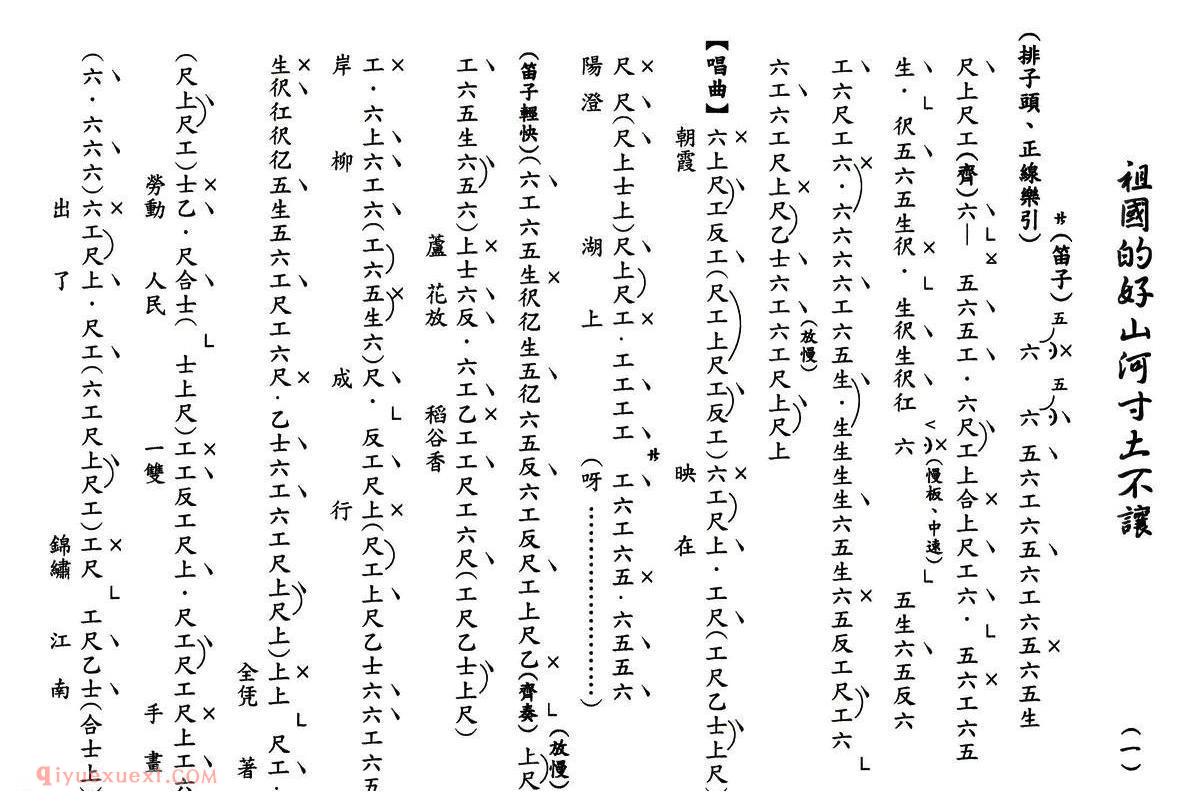 祖國的好山河寸土不讓 (一)
(排子頭、正線樂引)
サ(笛子)五六五六五六工六五六工六五六五生
尺上尺工(齊)六— 五六五工·六尺工上合上尺工六· 五六工六五
生·伬五六五生伬·生伬生伬仜 六(慢板、中速) 五生六五反六
工六尺工六·六六六工六五生·生生生生六五生六五反工尺工六
(放慢)
六工六工尺上尺乙士六工六工尺上尺上
【唱曲】六上尺工反工(尺工上尺工反工)六工尺上·工尺(工尺乙士上尺)
朝霞 映 在
尺尺(尺上士上)尺上尺工·工工工サ工六工六五·六五五六
陽澄 湖 上 (呀……………………)
(笛子輕快)(六工六五生伬亿生五亿六五反六工反尺工上尺乙(齊奏)上尺
(放慢)
工六五生六五六)上士六反·六工乙工工尺工六尺(工尺乙士上尺)
蘆花放 稻谷香
工·六上六工六(工六五生六)尺·反工尺上(尺工上尺乙士六六工六五
岸 柳 成 行
生伬仜伬亿五生五六工尺工六尺·乙士六工六工尺上尺上)上上 尺工·
全凭 著
(尺上尺工)士乙·尺合士( 士上尺)工工反工尺上·尺工尺工尺上工六
勞動 人民 一雙 手 畫
(六·六六六)六工尺上·尺工(六工尺上尺工)工尺 工尺乙士(合士上
出 了 錦繡 江 南
qiyuexuexi.com